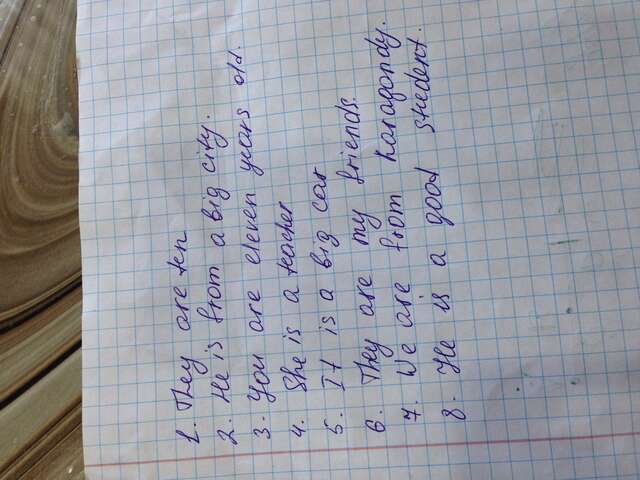 1. They are ten
2. He is from a big city.
3. You are eleven years old.
4. She is a teacher
5. It is a big car
6. They are my friends.
7. We are from Karagandy.
8. He is a good student.